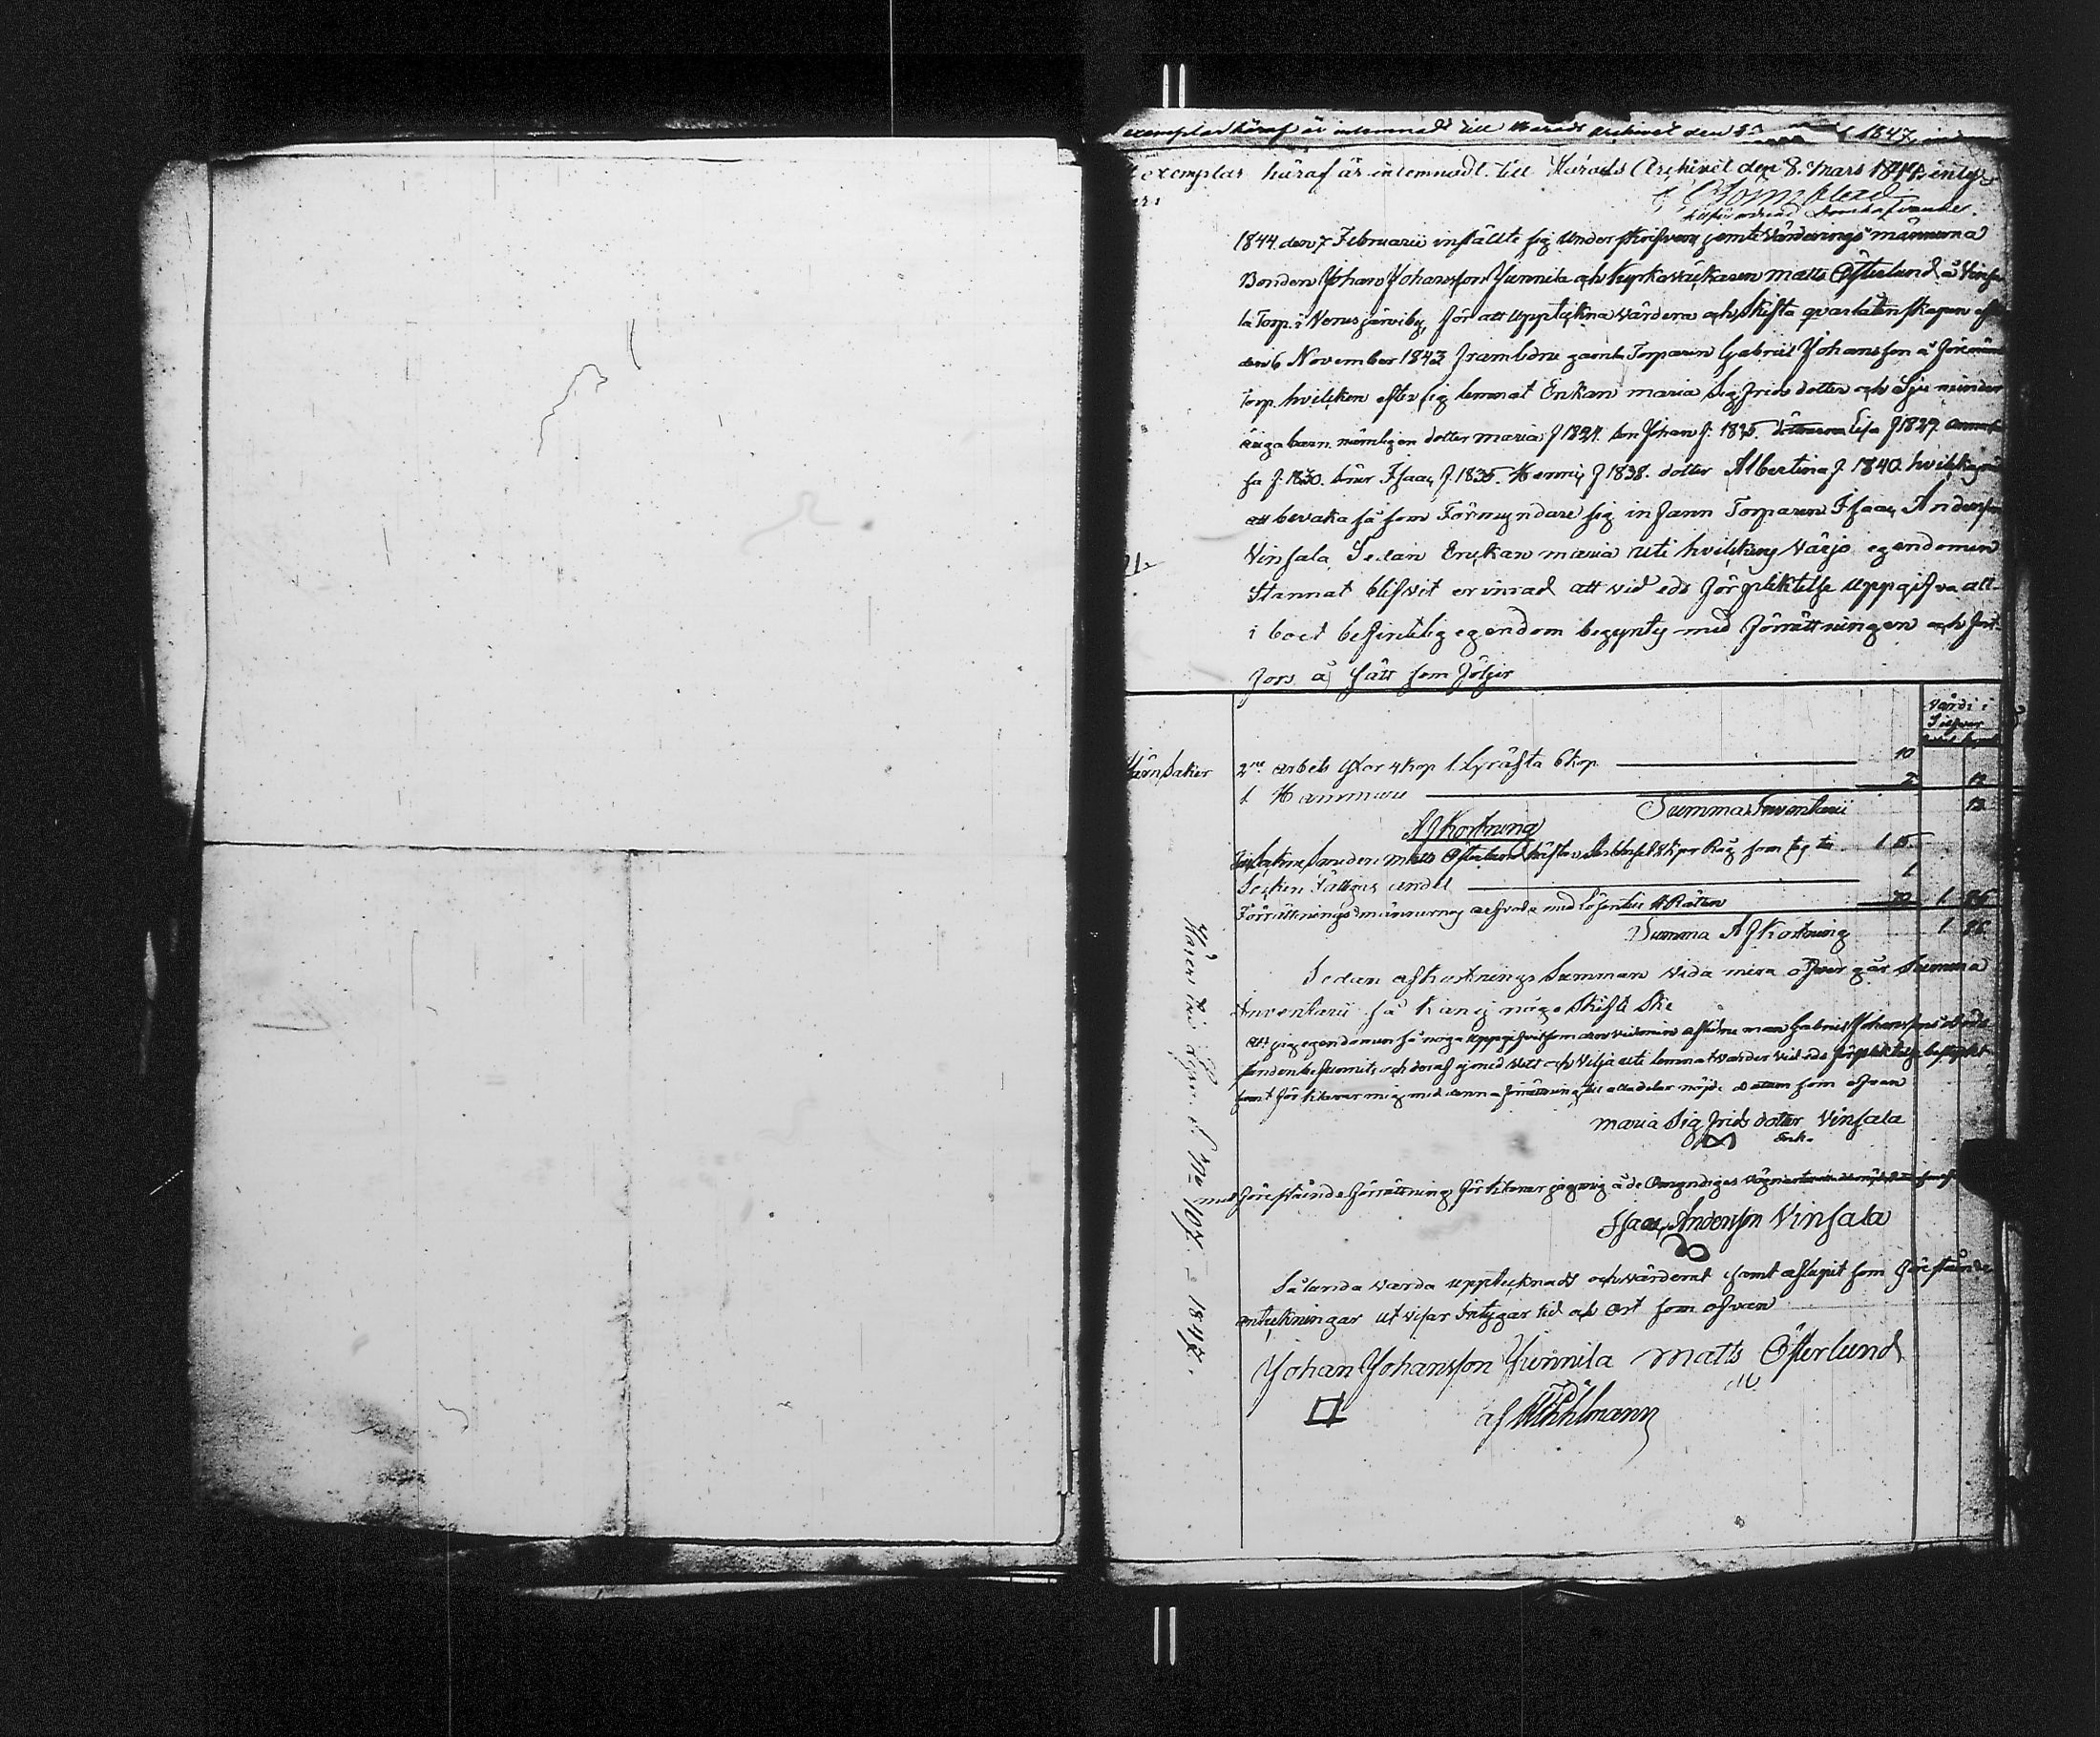 exemplar häraf är inlemnadt till Härads Archivet den 1847, in
exemplar häraf är inlemnadt till Härads Archivet den 8. Mars 1847, intyg
1844 den 7 Februarii instälte sig Underskrifven jemte Värderings männerna
Bonden Johan Johansson Junnila och Kyrkoväcktaren Matts Österlund å Vinsa
la Torp i Nerusjärvi by, för att upptekna värdera och skifta qvarlåtenskapen eft
den 6 November 1843 framledne gamla Torparen Gabriel Johansson å
Torp hvilken efter sig lemnat Enkan Maria Sigfrids dotter och Sju minder
åriga barn nämligen dotter Maria f 1821. Son Johan f. 1825. Lisa f 1827.
sa f. 1830. Söner Isaac f. 1835. Henric f 1838. dotter Albertina f. 1840. hvilkas
att bevaka så som Förmyndare sig infann Torparen Isaac Andersson
Vinsala Sedan Enckan Maria uti hvilkens värjo egendomen
Stannat blifvit erinrad att vid eds förpliktelse uppgifva all
i boet befintelig egendom begynts med förrättningen och fort
fors å sätt som följer
Värde i
Silfver
Järnsaker 2ne arbets yxor 4 kop 1 Gräfta 6 kop 10
1 Hammare 2 12
Summa Inventarii 12
Afkortning
Matts Österlund Råg som tg 1 15
Socken Fattigas andel 1
Förrättnings männernas arfvode med Lösen till H Rätten 70 1 86
Summa Afkortning 1 86
Sedan afkortnings Summan vida mera öfver går Summa
Inventarii så kan ej någo Skifte Ske
Att jag egendomen så noga uppgifvit som den vid min aflidne man Gabriel Johanssons död
sanden befunnits, och deraf ej med vett och vilja uti lemnat varder vid eds förpliktelse
samt förklarar mig med denna förrättning till alla delar nöjd. Datum som ofvan
Maria Sigfrids dotter Vinsala
Enka
med förestående förrättning förklarar jag mig å de Omyndigas vägnar
Isaac Andersson Vinsala
Sålunda varda uppteknadt och värderat samt aflupit som förestånde
antekningar utvisar Intygar tid och Ort som ofvan
Johan Johansson Junnila Matts Österlund
af
1847.